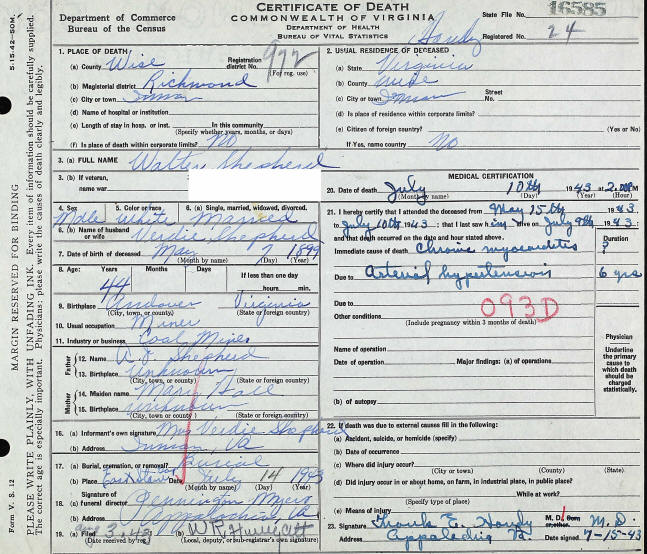 CERTIFICATE OF DEATH
COMMONWEALTH OF VIRGINIA
DEPARTMENT OF HEALTH
BUREAU OF VITAL STATISTICS
Department of Commerce
Bureau of the Census
State File No. 16585
Registered No. 24
Handy
5-15-42—50M.
MARGIN RESERVED FOR BINDING
PLEASE WRITE PLAINLY, WITH UNFADING INK. Every item of information should be carefully supplied.
The correct age is especially important. Physicians: please write the causes of death clearly and legibly.
Form V. S. 12
1. PLACE OF DEATH
(a) County Wise
Registration district No. 977
(For reg. use)
(b) Magisterial district Richmond
(c) City or town Inman
(d) Name of hospital or institution
(e) Length of stay in hosp. or inst. In this community
(Specify whether years, months, or days)
(f) Is place of death within corporate limits? No
2. USUAL RESIDENCE OF DECEASED
(a) State Virginia
(b) County Wise
(c) City or town Inman Street No.
(d) Is place of residence within corporate limits?
(e) Citizen of foreign country? (Yes or No)
If Yes, name country No
3. (a) FULL NAME Walter Shepherd
3. (b) If veteran, name war
4. Sex Male
5. Color or race White
6. (a) Single, married, widowed, divorced. Married
6. (b) Name of husband or wife Verdie Shepherd
7. Date of birth of deceased May 7 1899
(Month by name) (Day) (Year)
8. Age: Years Months Days If less than one day
44 hours min.
9. Birthplace Andover Virginia
(City, town, or county) (State or foreign country)
10. Usual occupation Miner
11. Industry or business Coal Mines
Father
12. Name A. J. Shepherd
13. Birthplace Unknown
(City, town, or county) (State or foreign country)
Mother
14. Maiden name Mary Hall
15. Birthplace Unknown
(City, town, or county) (State or foreign country)
16. (a) Informant's own signature Mrs Verdie Shepherd
(b) Address Inman, Va
17. (a) Burial, cremation, or removal? Burial
(b) Place Date July 14 1943
(Month by name) (Day) (Year)
18. Signature of
(a) funeral director Pennington
(b) Address Appalachia, Va
19. (a) Filed Aug 3, 43 (b) W. R.
(Date received by reg.) (Local, deputy, or sub-registrar's own signature)
MEDICAL CERTIFICATION
20. Date of death July 10th 1943 at 2:00 P M
(Month by name) (Day) (Year) (Hour)
21. I hereby certify that I attended the deceased from May 15th 1943
to July 10th 1943: that I last saw him alive on July 9th 1943;
and that death occurred on the date and hour mentioned above.
Duration
Immediate cause of death Chronic myocarditis ?
Due to Arterial hypertension 6 yrs
Due to
093D
Other conditions
(Include pregnancy within 3 months of death)
Name of operation
Date of operation Major findings: (a) of operations
(b) of autopsy
Physician
Underline the primary cause to which death should be charged statistically.
22. If death was due to external causes fill in the following:
(a) Accident, suicide, or homicide (specify)
(b) Date of occurrence
(c) Where did injury occur?
(City or town) (County) (State)
(d) Did injury occur in or about home, on farm, in industrial place, in public place?
While at work?
(Specify type of place)
(e) Means of injury
23. Signature Frank E. Handy M. D.
Address Appalachia Va. Date signed 7-15-43